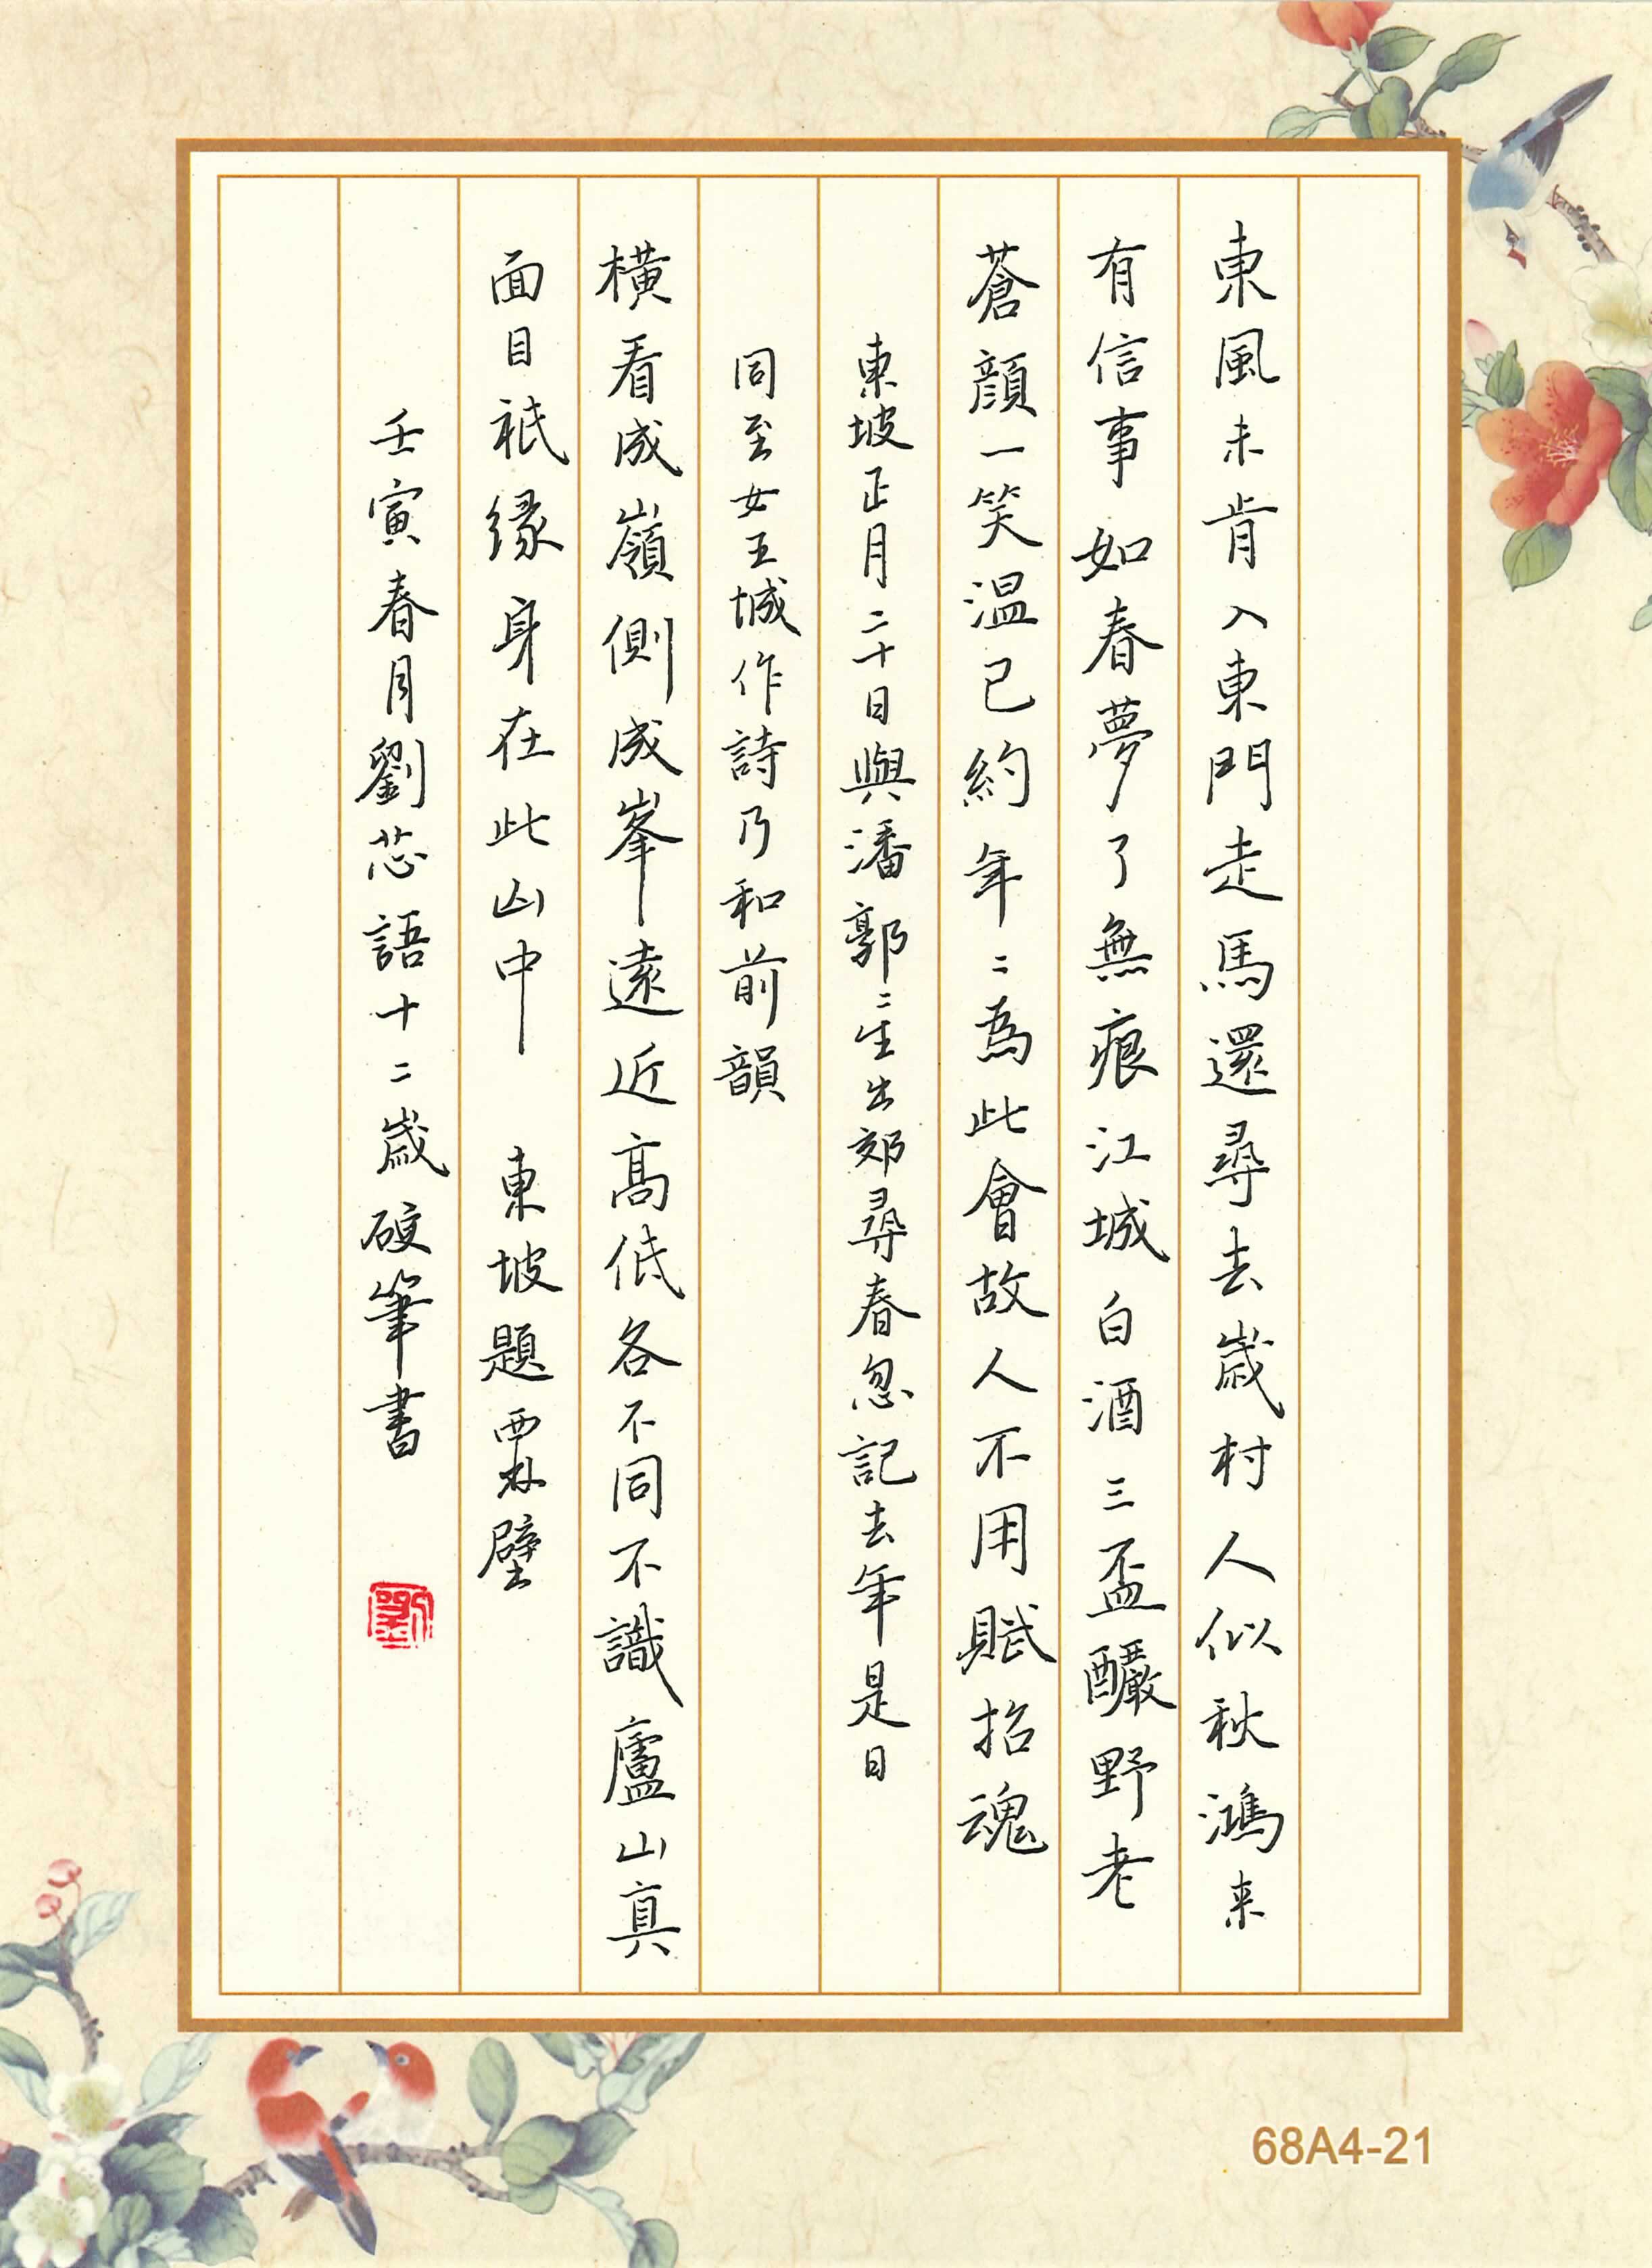 東風未肯入東門走馬還尋去歲村人似秋鴻来
有信事如春夢了無痕江城白酒三盃釅野老
蒼顔一笑温已約年二為此會故人不用賦招魂
東坡正月二十日與潘郭二生出郊尋春忽記去年是日
同至女王城作詩乃和前韻
橫看成嶺側成峯遠近髙低各不同不識廬山真
面目祇緣身在此山中 東坡題西林壁
壬寅春月劉芯語十二歲硬筆書
劉
68A4-21